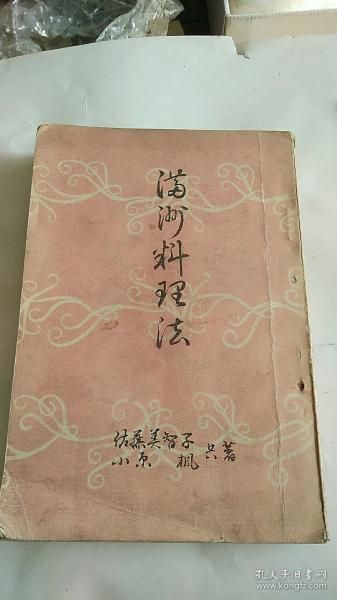 満洲料理法
佐藤美智子
小原 楓 共著
孔夫子旧书网
www.kongfz.com